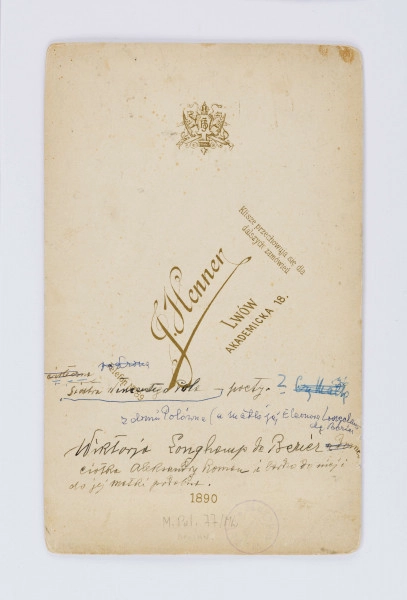 Klisze przechowują się dla
dalszych zamówień
J. Henner
LWÓW
AKADEMICKA 18.
siostra Wincentego Pola poety. z
z domu Polówna (a matka jej Eleonora Longchamps
de Berier
Wiktorja Longchamp de Berier
ciotka Aleksandry Roman i bardzo do niej i
do jej matki podobna.
1890
M.Pol. 77/